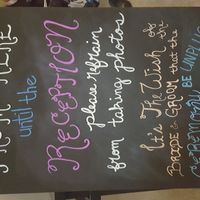 until the
RECEPTION
please refrain
from taking photos
It's The Wish of the
BRIDE & GROOM that the
CEREMONY BE UNPLUG